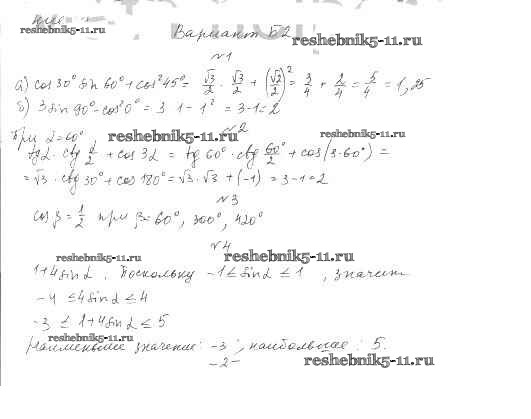 Вариант Б2
reshebnik5-11.ru
№1
а) cos30° sin60° + cos²45° = √3/2 · √3/2 + (√2/2)² = 3/4 + 2/4 = 5/4 = 1,25
б) 3sin90° - cos²0° = 3·1 - 1² = 3-1=2
reshebnik5-11.ru
№2
При α=60°
tgα · ctg α/2 + cos3α = tg60° · ctg 60°/2 + cos(3·60°) =
= √3 · ctg30° + cos180° = √3 · √3 + (-1) = 3-1=2
№3
cosβ = 1/2 при β=60°, 300°, 420°
№4
reshebnik5-11.ru reshebnik5-11.ru
1+4sinα. Поскольку -1 ≤ sinα ≤ 1, значит
-4 ≤ 4sinα ≤ 4
-3 ≤ 1+4sinα ≤ 5
reshebnik5-11.ru
Наименьшее значение: -3; наибольшее: 5.
-2-
reshebnik5-11.ru